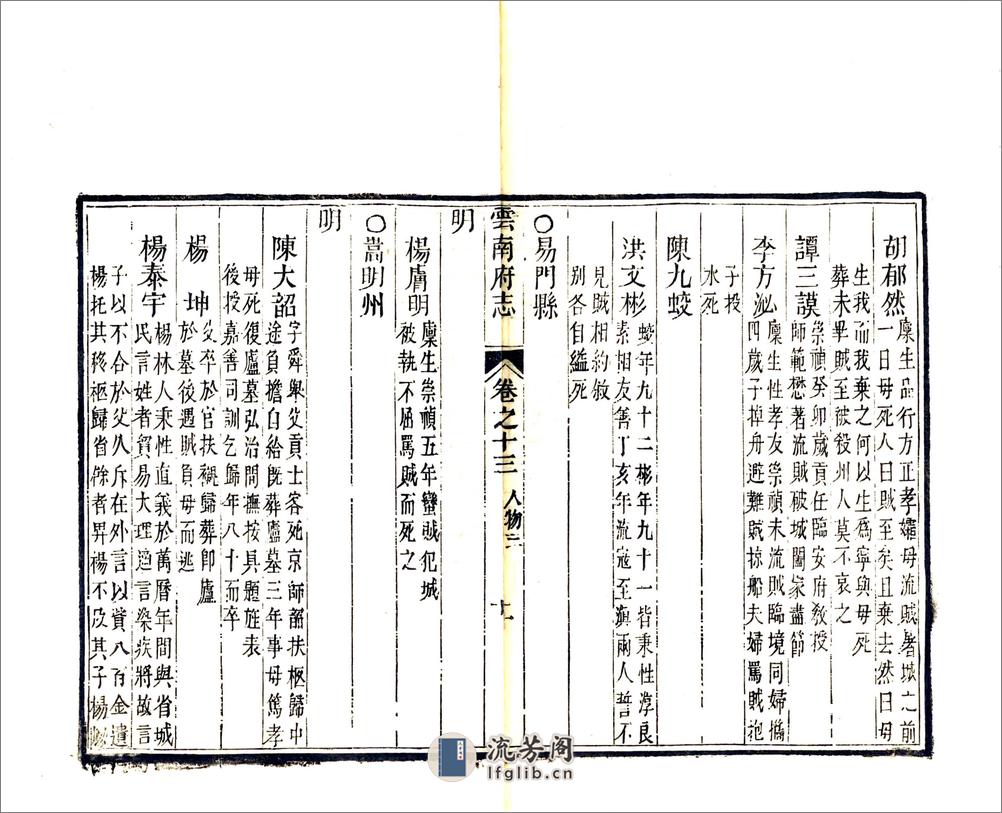 胡郁然
廩生品行方正孝孀母流賊署城之前
一日母死人曰賊至矣且棄去然曰母
生我而我棄之何以生爲寧與母死
葬未畢賊至被殺州人莫不哀之
譚三謨
崇禎癸卯歲貢任臨安府教授
師範懋著流賊破城闔家盡節
李方泌
廩生性孝友崇禎末流賊臨境同婦攜
四歲子掉舟避難賊掠船夫婦罵賊抱
子投
水死
陳九蛟
洪文彬
蛟年九十二彬年九十一皆秉性淳良
素相友善丁亥年流寇至滇兩人誓不
見賊相約敘
別各自縊死
○易門縣
雲南府志 卷之十三 人物二 十一
明
楊膚明
廩生崇禎五年蠻賊犯城
被執不屈罵賊而死之
○嵩明州
明
陳大韶
字舜舉父貢士客死京師韶扶柩歸中
途負擔自給旣葬廬墓三年事母篤孝
母死復廬墓弘治間撫按具題旌表
後授嘉善司訓乞歸年八十而卒
楊坤
父卒於官扶櫬歸葬卽廬
於墓後遇賊負母而逃
楊泰宇
楊林人秉性直義於萬曆年間與省城
民言姓者貿易大理適言染疾將故言
子以不合於父久斥在外言以貲八百金遺
楊托其移柩歸省餘者畀楊不及其子楊
流芳阁
lfglib.cn